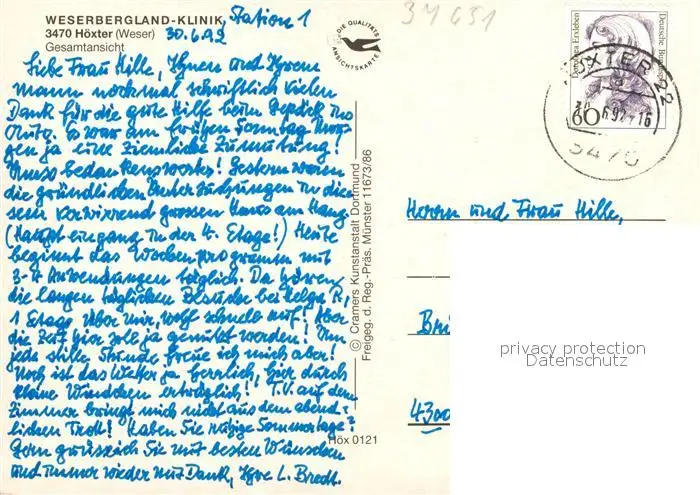 WESERBERGLAND-KLINIK, Station 1
3470 Höxter (Weser) 30.6.92
Gesamtansicht
DIE QUALITÄTS ANSICHTSKARTE
34651
Liebe Frau Hille, Ihnen und Ihrem
Mann nochmal schriftlich vielen
Dank für die gute Hilfe beim Gepäck ins
Auto. Es war am frühen Sonntag Mor-
gen ja eine ziemliche Zumutung!
Muss bedankenswertes! Gestern waren
die gründlichen Untersuchungen in die-
sem verwirrend grossen Haus am Hang.
(Haupteingang in der 4. Etage!) Heute
beginnt das Wochenprogramm mit
3-4 Anwendungen täglich. Da hören
die langen täglichen Besuche bei Helga R,
1 Etage über mir, wohl schnell auf! Aber
die Zeit hier soll ja genutzt werden! Um
jede stille Stunde freue ich mich aber!
Noch ist das Wetter ja herrlich, hier durch
kleine Windchen erträglich! T.V. auf dem
Zimmer bringt mich nicht aus dem abend-
lichen Trott! Haben Sie ruhige Sommertage?
Gern grüsse ich Sie mit besten Wünschen
und immer wieder mit Dank, Ihre L. Bredt.
© Cramers Kunstanstalt Dortmund
Freigeg. d. Reg.-Präs. Münster 11673/86
Höx 0121
Dorothea Erxleben
Deutsche Bundespost
60
HÖXTER 22
30.6.92-16
3470
Herrn und Frau Hille,
4300
privacy protection
Datenschutz